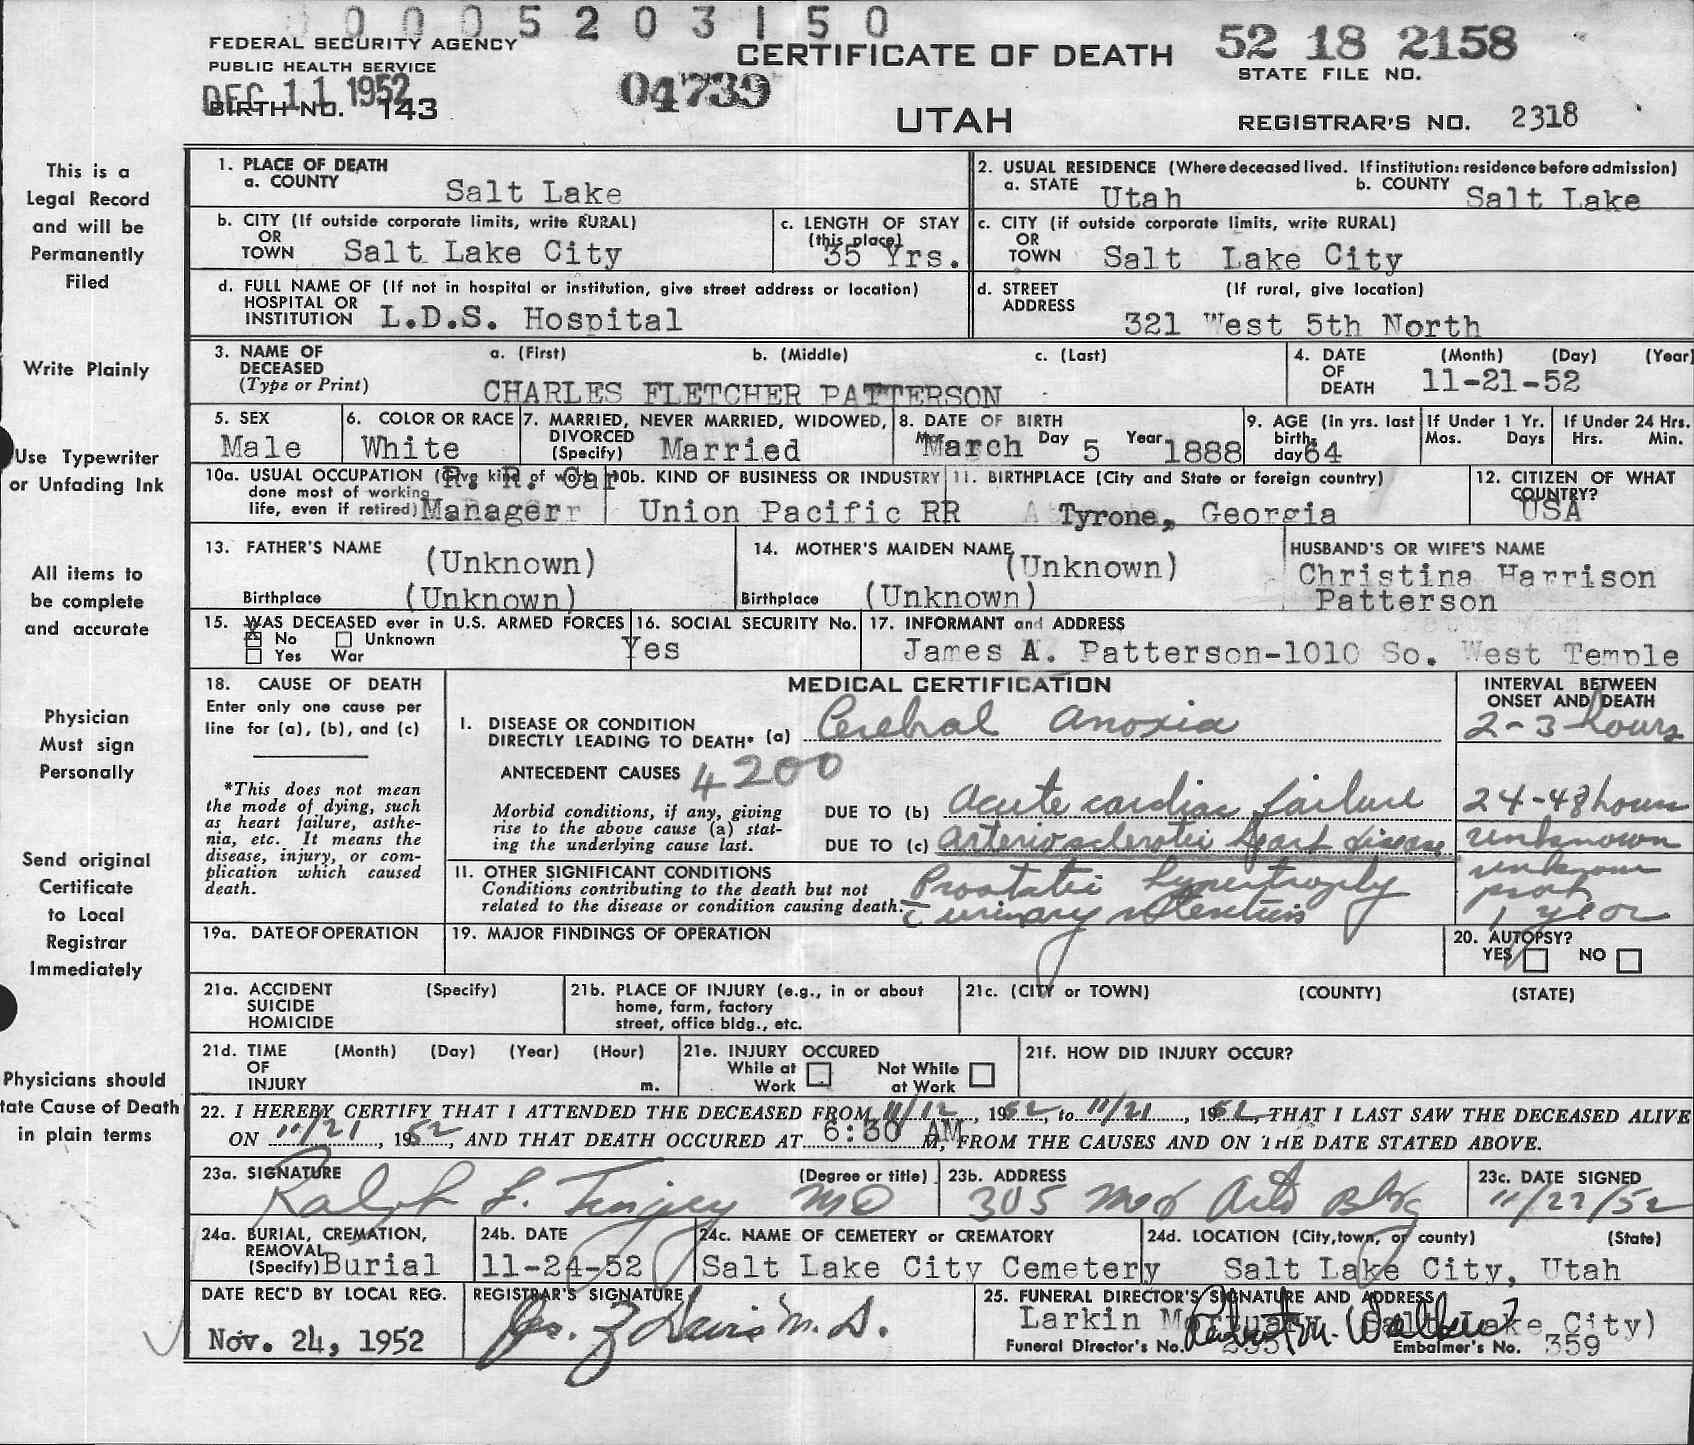 0 0 0 5 2 0 3 1 5 0
FEDERAL SECURITY AGENCY
PUBLIC HEALTH SERVICE
DEC 11 1952
BIRTH NO. 143
04739
CERTIFICATE OF DEATH
UTAH
52 18 2158
STATE FILE NO.
REGISTRAR'S NO. 2318
This is a
Legal Record
and will be
Permanently
Filed
Write Plainly
Use Typewriter
or Unfading Ink
All items to
be complete
and accurate
Physician
Must sign
Personally
Send original
Certificate
to Local
Registrar
Immediately
Physicians should
tate Cause of Death
in plain terms
1. PLACE OF DEATH
a. COUNTY Salt Lake
2. USUAL RESIDENCE (Where deceased lived. If institution: residence before admission)
a. STATE Utah b. COUNTY Salt Lake
b. CITY (If outside corporate limits, write RURAL)
OR
TOWN Salt Lake City
c. LENGTH OF STAY
(this place)
35 Yrs.
c. CITY (if outside corporate limits, write RURAL)
OR
TOWN Salt Lake City
d. FULL NAME OF (If not in hospital or institution, give street address or location)
HOSPITAL OR
INSTITUTION L.D.S. Hospital
d. STREET (If rural, give location)
ADDRESS
321 West 5th North
3. NAME OF a. (First) b. (Middle) c. (Last)
DECEASED
(Type or Print) CHARLES FLETCHER PATTERSON
4. DATE (Month) (Day) (Year)
OF
DEATH 11-21-52
5. SEX
Male
6. COLOR OR RACE
White
7. MARRIED, NEVER MARRIED, WIDOWED,
DIVORCED
(Specify) Married
8. DATE OF BIRTH
March Day 5 Year 1888
9. AGE (in yrs. last
birth-
day) 64
If Under 1 Yr.
Mos. Days
If Under 24 Hrs.
Hrs. Min.
10a. USUAL OCCUPATION (Give kind of work
done most of working
life, even if retired)
R. R. Car
Manager
10b. KIND OF BUSINESS OR INDUSTRY
Union Pacific RR
11. BIRTHPLACE (City and State or foreign country)
Tyrone, Georgia
12. CITIZEN OF WHAT
COUNTRY?
USA
13. FATHER'S NAME (Unknown)
Birthplace (Unknown)
14. MOTHER'S MAIDEN NAME (Unknown)
Birthplace (Unknown)
HUSBAND'S OR WIFE'S NAME
Christina Harrison
Patterson
15. WAS DECEASED ever in U.S. ARMED FORCES
X No Unknown
Yes War
16. SOCIAL SECURITY No.
Yes
17. INFORMANT and ADDRESS
James A. Patterson-1010 So. West Temple
18. CAUSE OF DEATH
Enter only one cause per
line for (a), (b), and (c)
*This does not mean
the mode of dying, such
as heart failure, asthe-
nia, etc. It means the
disease, injury, or com-
plication which caused
death.
MEDICAL CERTIFICATION
INTERVAL BETWEEN
ONSET AND DEATH
I. DISEASE OR CONDITION
DIRECTLY LEADING TO DEATH* (a) Cerebral anoxia 2-3 hours
ANTECEDENT CAUSES 4200
Morbid conditions, if any, giving
rise to the above cause (a) stat-
ing the underlying cause last.
DUE TO (b) Acute cardiac failure 24-48 hours
DUE TO (c) Arteriosclerotic heart disease unknown
11. OTHER SIGNIFICANT CONDITIONS
Conditions contributing to the death but not
related to the disease or condition causing death:
Prostatic hypertrophy
c urinary retention
unknown
1 year
19a. DATE OF OPERATION
19. MAJOR FINDINGS OF OPERATION
20. AUTOPSY?
YES NO
21a. ACCIDENT (Specify)
SUICIDE
HOMICIDE
21b. PLACE OF INJURY (e.g., in or about
home, farm, factory
street, office bldg., etc.
21c. (CITY or TOWN) (COUNTY) (STATE)
21d. TIME (Month) (Day) (Year) (Hour)
OF
INJURY m.
21e. INJURY OCCURED
While at Not While
Work at Work
21f. HOW DID INJURY OCCUR?
22. I HEREBY CERTIFY THAT I ATTENDED THE DECEASED FROM 11/12, 1952, to 11/21, 1952, THAT I LAST SAW THE DECEASED ALIVE
ON 11/21, 1952, AND THAT DEATH OCCURED AT 6:30 AM M, FROM THE CAUSES AND ON THE DATE STATED ABOVE.
23a. SIGNATURE (Degree or title)
Ralph L. Tingey MD
23b. ADDRESS
305 Med Arts Bldg
23c. DATE SIGNED
11/22/52
24a. BURIAL, CREMATION,
REMOVAL
(Specify) Burial
24b. DATE
11-24-52
24c. NAME OF CEMETERY or CREMATORY
Salt Lake City Cemetery
24d. LOCATION (City, town, or county) (State)
Salt Lake City, Utah
DATE REC'D BY LOCAL REG.
Nov. 24, 1952
REGISTRAR'S SIGNATURE
Jos. Z Davis M.D.
25. FUNERAL DIRECTOR'S SIGNATURE AND ADDRESS
Larkin Mortuary (Salt Lake City)
Funeral Director's No. Embalmer's No. 359